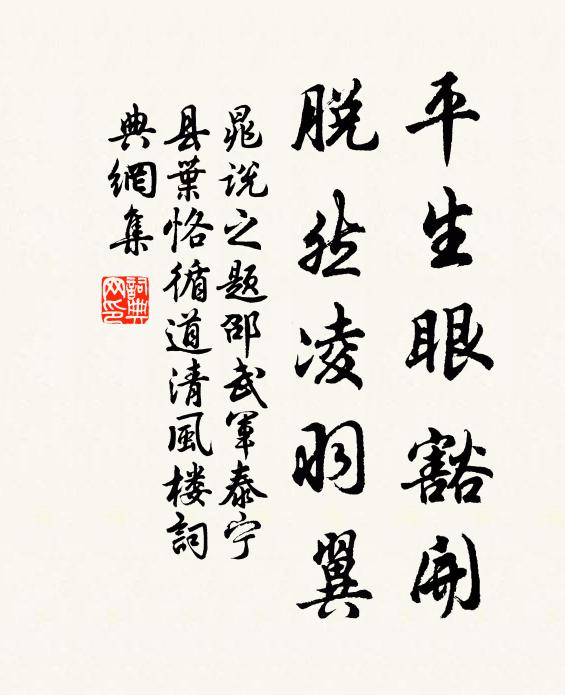 平生眼豁開
脱然凌羽翼
晁说之题邵武军泰宁
县葉恪循道清風楼詞
典網集
詞典网印